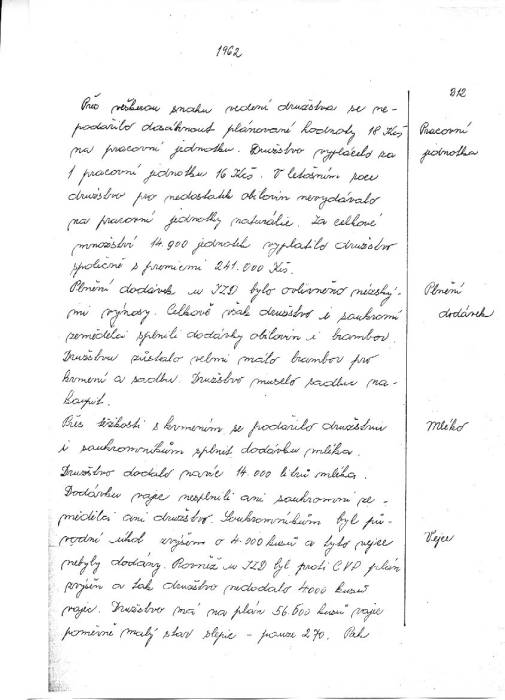 1962
312
Přes veškerou snahu vedení družstva se ne-
podařilo dosáhnout plánované hodnoty 18 Kčs
Pracovní
na pracovní jednotku. Družstvo vyplácelo za
jednotka
1 pracovní jednotku 16 Kčs. V letošním roce
družstvo pro nedostatek obilovin nevydávalo
na pracovní jednotky naturálie. Za celkové
množství 14.900 jednotek vyplatilo družstvo
společně s premiemi 241.000 Kčs.
Plnění dodávek u JZD bylo ovlivněno nízký-
Plnění
mi výnosy. Celkově však družstvo i soukromí
dodávek
zemědělci splnili dodávky obilovin i brambor.
Družstvu zůstalo velmi málo brambor pro
krmení a sadbu. Družstvo muselo sadbu na-
koupit.
Přes těžkosti s krmením se podařilo družstvu
Mléko
i soukromníkům splnit dodávku mléka.
Družstvo dodalo navíc 14.000 litrů mléka.
Dodávku vajec nesplnili ani soukromí ze-
mědělci ani družstvo. Soukromníkům byl pů-
vodní úkol zvýšen o 4.000 kusů a tyto vejce
Vejce
nebyly dodány. Rovněž u JZD byl proti CVP plán
zvýšen a tak družstvo nedodalo 4000 kusů
vajec. Družstvo má na plán 56.600 kusů vajec
poměrně malý stav slepic - pouze 270. Pak